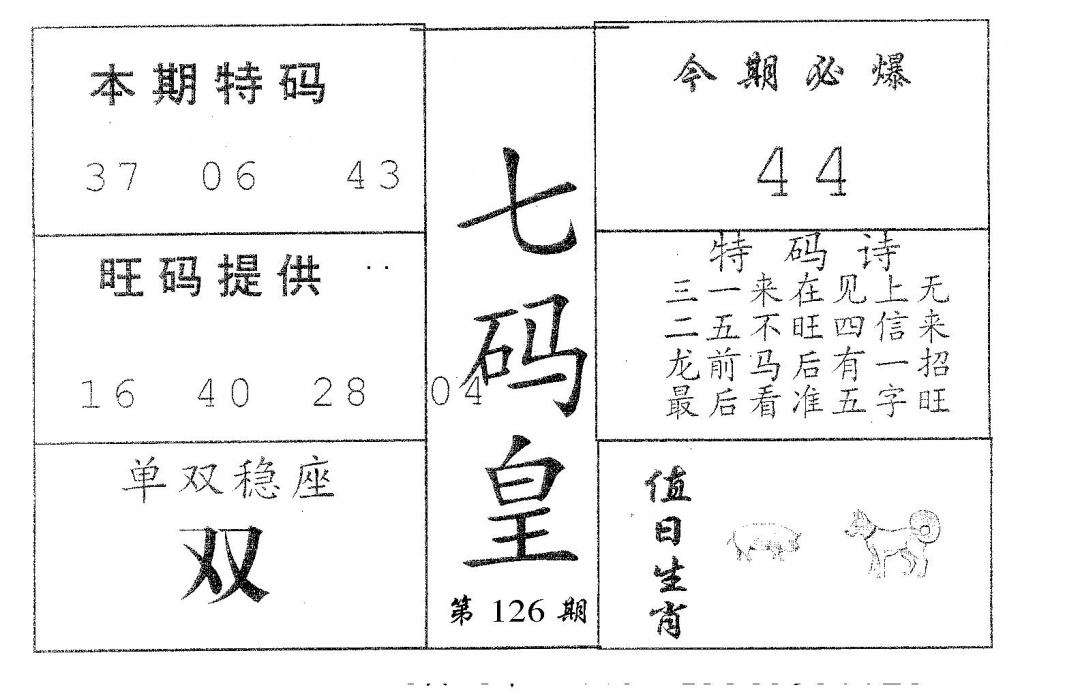 本期特码
37 06 43
旺码提供 ..
16 40 28 04
单双稳座
双
七码皇
第 126 期
今期必爆
44
特码诗
三一来在见上无
二五不旺四信来
龙前马后有一招
最后看准五字旺
值日生肖